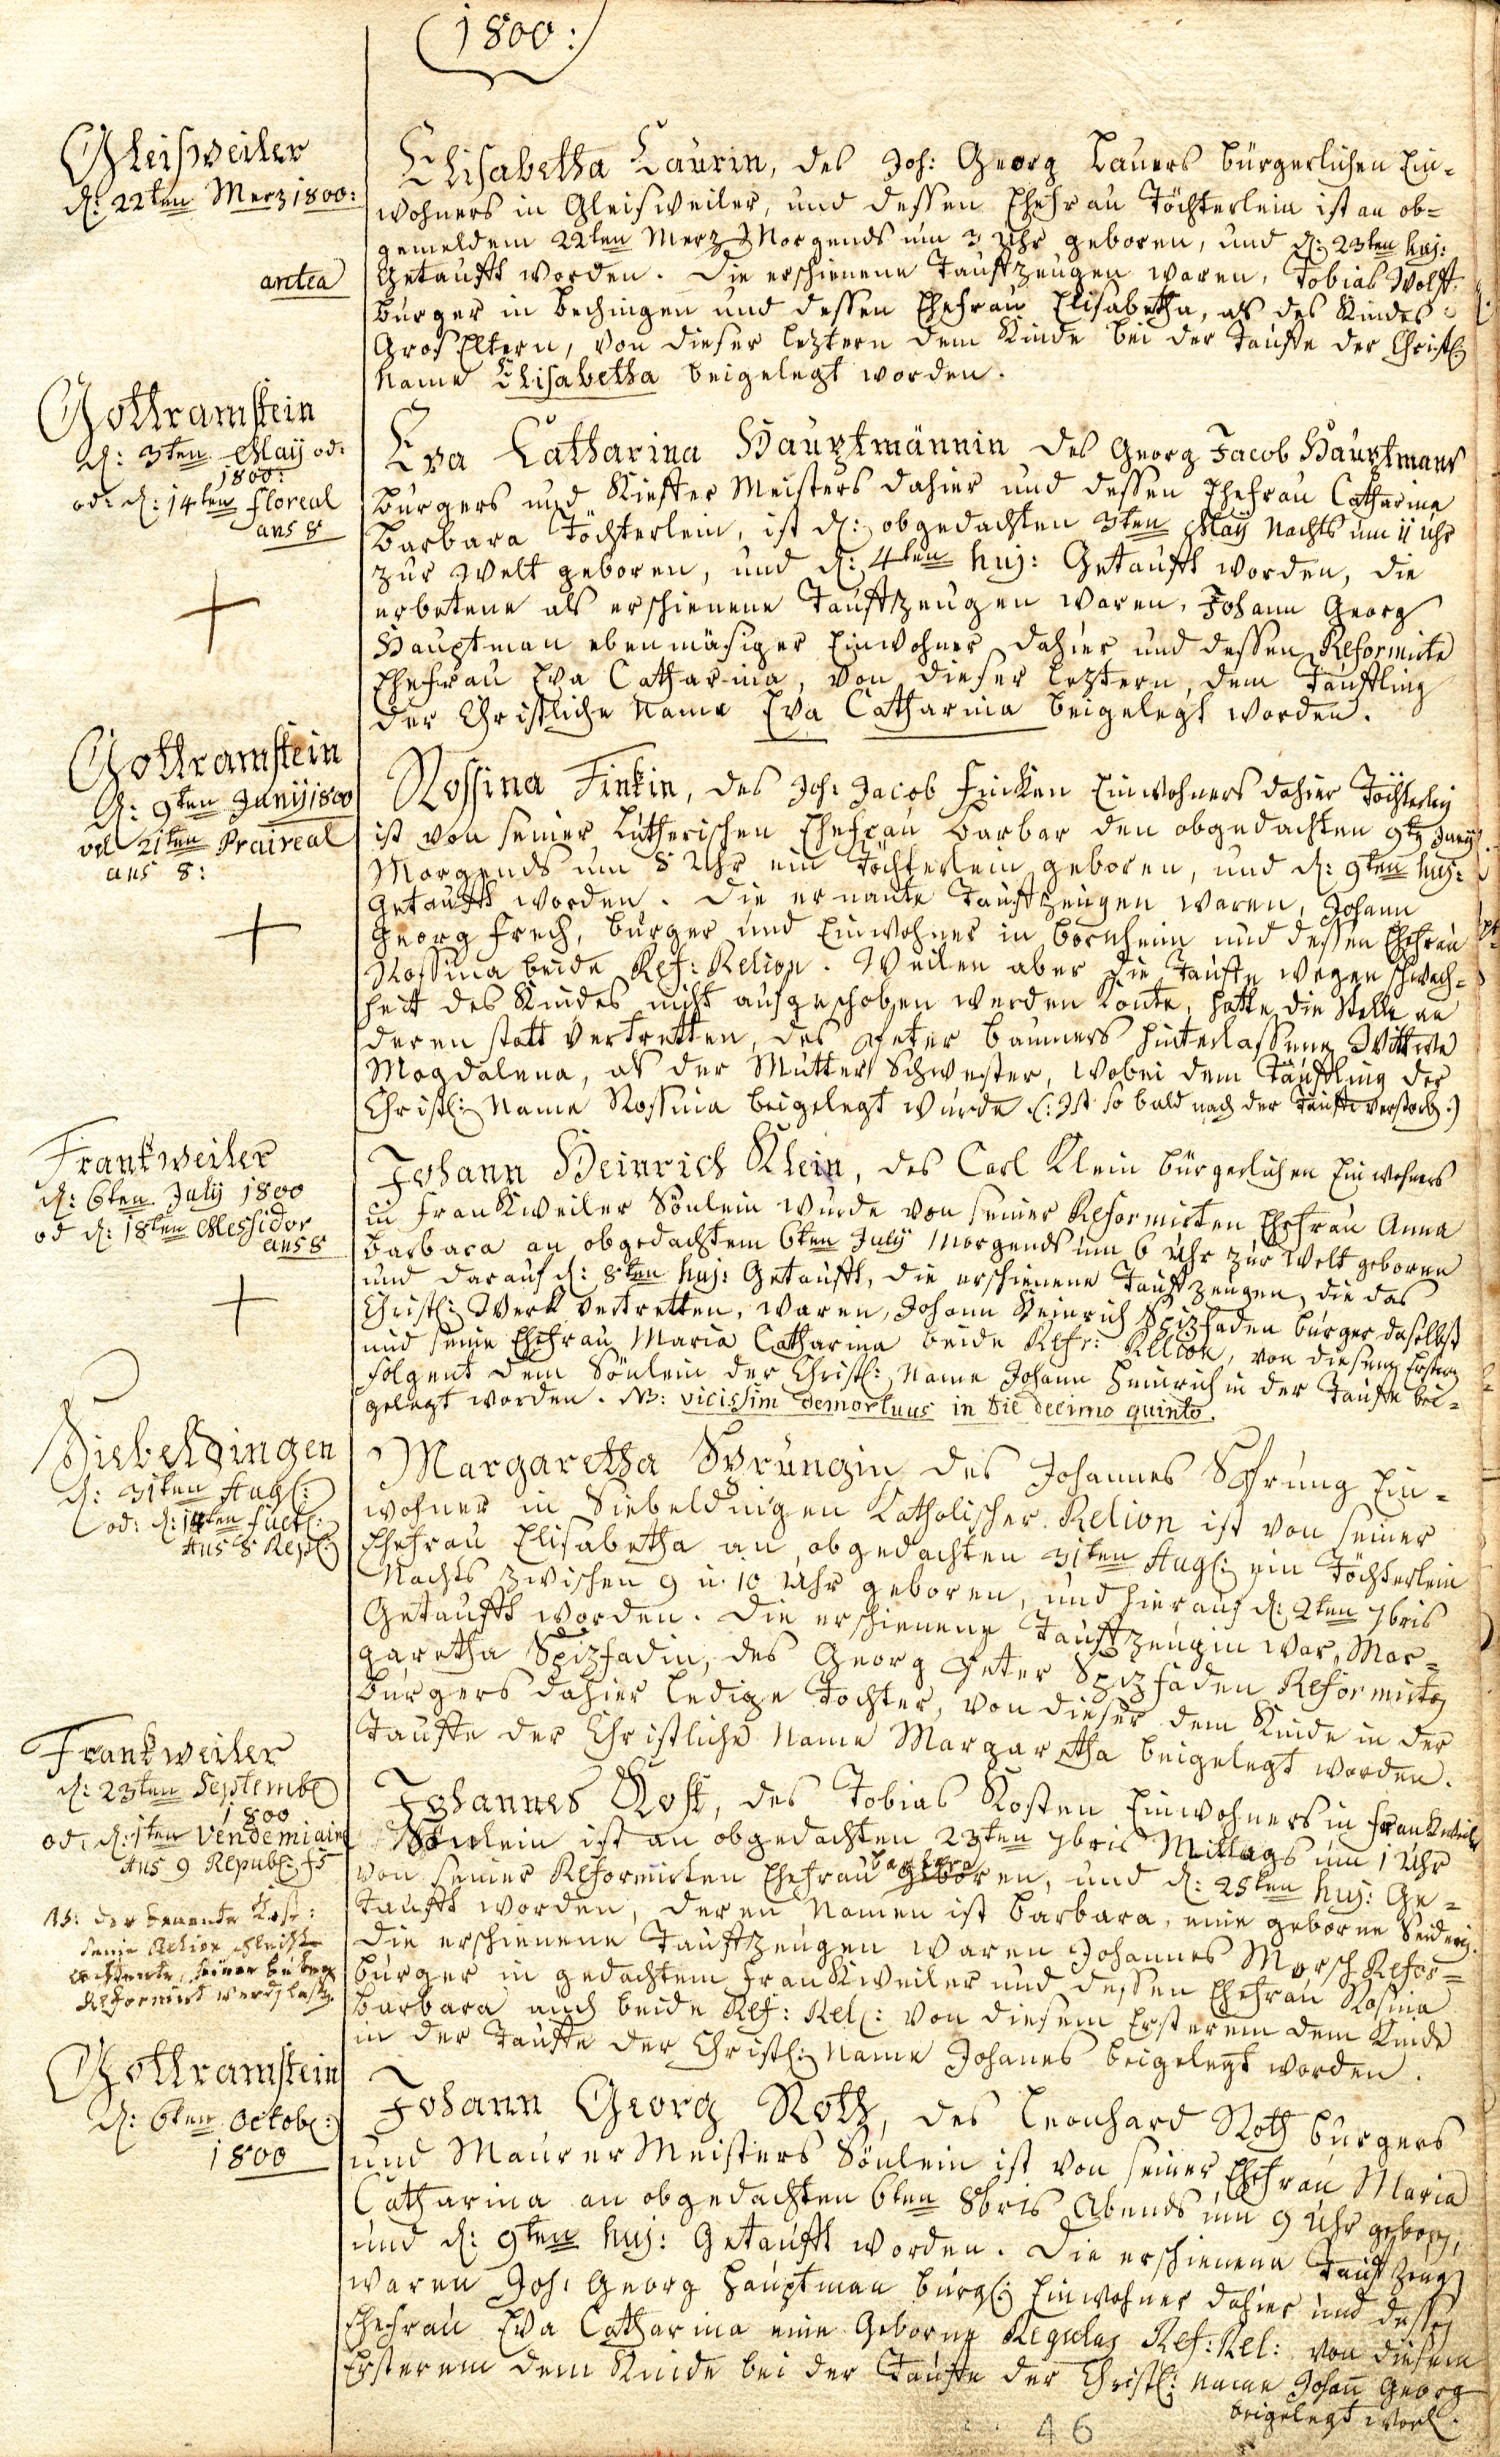 1800:
Gleisweiler
d: 22ten Merz 1800:
antea
Elisabetha Laurin, des Joh: Georg Lauers bürgerlichen Ein-
wohners in Gleisweiler, und dessen Ehefrau Töchterlein ist an ob-
gemeldem 22ten Merz Morgends um 3 Uhr geboren, und d: 23ten huj:
Getaufft worden. Die erschienene Tauffzeugen waren, Tobias Wolff
burger in bechingen und dessen Ehefrau Elisabetha, als des Kindes
Gros Eltern, von dieser leztern dem Kinde bei der Tauffe der Christl:
Name Elisabetha beigelegt worden.
Gottramstein
d: 3ten Maij od:
1800:
od: d: 14ten floreal
ans 8
Eva Catharina Hauptmännin des Georg Jacob Hauptmans
Burgers und Kieffer Meisters dahier und dessen Ehefrau Catharina
Barbara Töchterlein, ist d: obgedachten 3ten Maij Nachts um 11 Uhr
zur Welt geboren, und d: 4ten huj: Getaufft worden, die
erbetene als erschienene Tauffzeugen waren, Johann Georg
Hauptman ebenmäsiger Einwohner dahier und dessen Reformirte
Ehefrau Eva Catharina, von dieser leztern, dem Täuffling
der Christliche Name Eva Catharina beigelegt worden.
Gottramstein
d: 9ten Junij 1800
vel 21ten Praireal
ans 8:
Rossina Finkin, des Joh: Jacob Finken Einwohners dahier Töchterlein
ist von seiner Lutherischen Ehefrau Barbar den obgedachten 9ten Junij
Morgends um 8 Uhr ein Töchterlein geboren, und d: 9ten huj:
Getaufft worden. Die ernante Tauffzeugen waren, Johann
Georg Frech, burger und Einwohner in Bornheim und dessen Ehefrau
Rossina beide Ref: Relion. Weilen aber die Tauffe wegen schwach-
heit des Kindes nicht aufgeschoben werden konte, hatte die Stelle an
deren statt vertretten, des Peter Bauners hinterlassene Wittwe
Magdalena, als der Mutter Schwester, wobei dem Täuffling der
Christl: Name Rossina beigelegt wurde (: Ist so bald nach der Tauffe verstorb:)
Frankweiler
d: 6ten July 1800
od d: 18ten Messidor
ans 8
Johann Heinrich Klein, des Carl Klein bürgerlichen Einwohners
in Frankweiler Sönlein wurde von seiner Reformirten Ehefrau Anna
Barbara an obgedachtem 6ten July Morgends um 6 Uhr zur Welt geboren
und darauf d: 8ten huj: Getaufft, die erschienene Tauffzeugen, die das
Christl: Werk vertretten, waren, Johann Heinrich Spizfaden burger daselbst
und seine Ehefrau Maria Catharina beide Refr: Relion, von diesem Erstern
folgent dem Sönlein der Christl: Name Johann Heinrich in der Tauffe bei-
gelegt worden. NB: vicissim demortuus in die decimo quinto.
Siebeldingen
d: 31ten Aug:
od: d: 14ten fuct:
Ans 8 Rep:
Margaretha Sprungin des Johannes Sprung Ein-
wohner in Siebeldingen Katholischer Relion ist von seiner
Ehefrau Elisabetha an obgedachten 31ten Aug: ein Töchterlein
Nachts zwischen 9 u: 10 Uhr geboren, und hierauf d: 2ten 7bris
Getaufft worden. Die erschienene Tauffzeugin war, Mar-
garetha Spizfadin, des Georg Peter Spizfaden Reformirten
burgers dahier ledige Tochter, von dieser dem Kinde in der
Tauffe der Christliche Name Margaretha beigelegt worden.
Frankweiler
d: 23ten Septemb
1800
od: d: 1ten Vendemiaire
Ans 9 Republ: fr
NB: der benente Kost:
seine Relion
Reformirt
Johannes Kost, des Tobias Kosten Einwohners in Frankweiler
Sönlein ist an obgedachten 23ten 7bris Mittags um 1 Uhr
von seiner Reformirten Ehefrau Barbara geboren, und d: 25ten huj: Ge-
taufft worden, deren Namen ist Barbara, eine geborne
Die erschienene Tauffzeugen waren Johannes Morsch Refor-
burger in gedachtem Frankweiler und dessen Ehefrau Rosina
Barbara auch beide Ref: Rel: von diesem Ersterem dem Kinde
in der Tauffe der Christl: Name Johanes beigelegt worden.
Gottramstein
d: 6ten Octob:
1800
Johann Georg Roth, des Leonhard Roth burgers
und Maurer Meisters Sönlein ist von seiner Ehefrau Maria
Catharina an obgedachten 6ten 8bris Abends um 9 Uhr geboren,
und d: 9ten huj: Getaufft worden. Die erschienene Tauffzeugen
waren Joh: Georg Hauptman burg: Einwohner dahier und dessen
Ehefrau Eva Catharina eine Geborne Regulas Ref: Rel: von diesem
Ersterem dem Kinde bei der Tauffe der Christl: Name Johann Georg
beigelegt word.
46